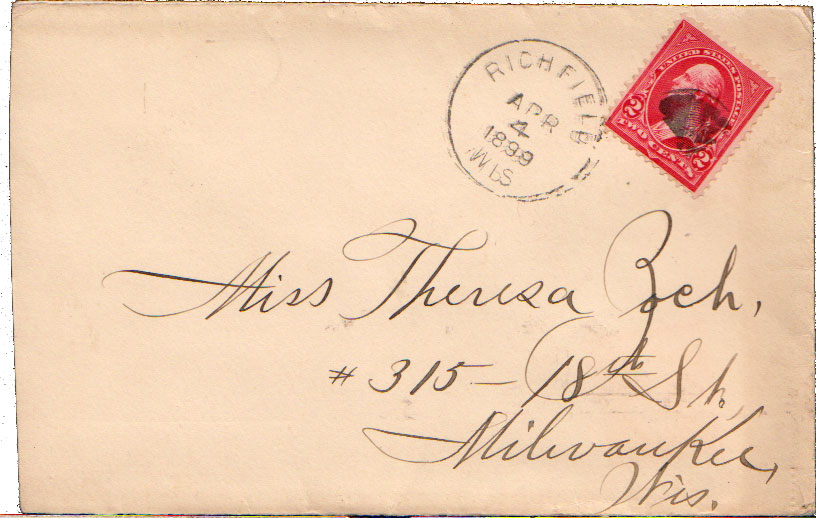 RICHFIELD
APR
4
1899
WIS
UNITED STATES POSTAGE
2 TWO CENTS 2
Miss Theresa Zoch,
# 315 – 18th St,
Milwaukee,
Wis.